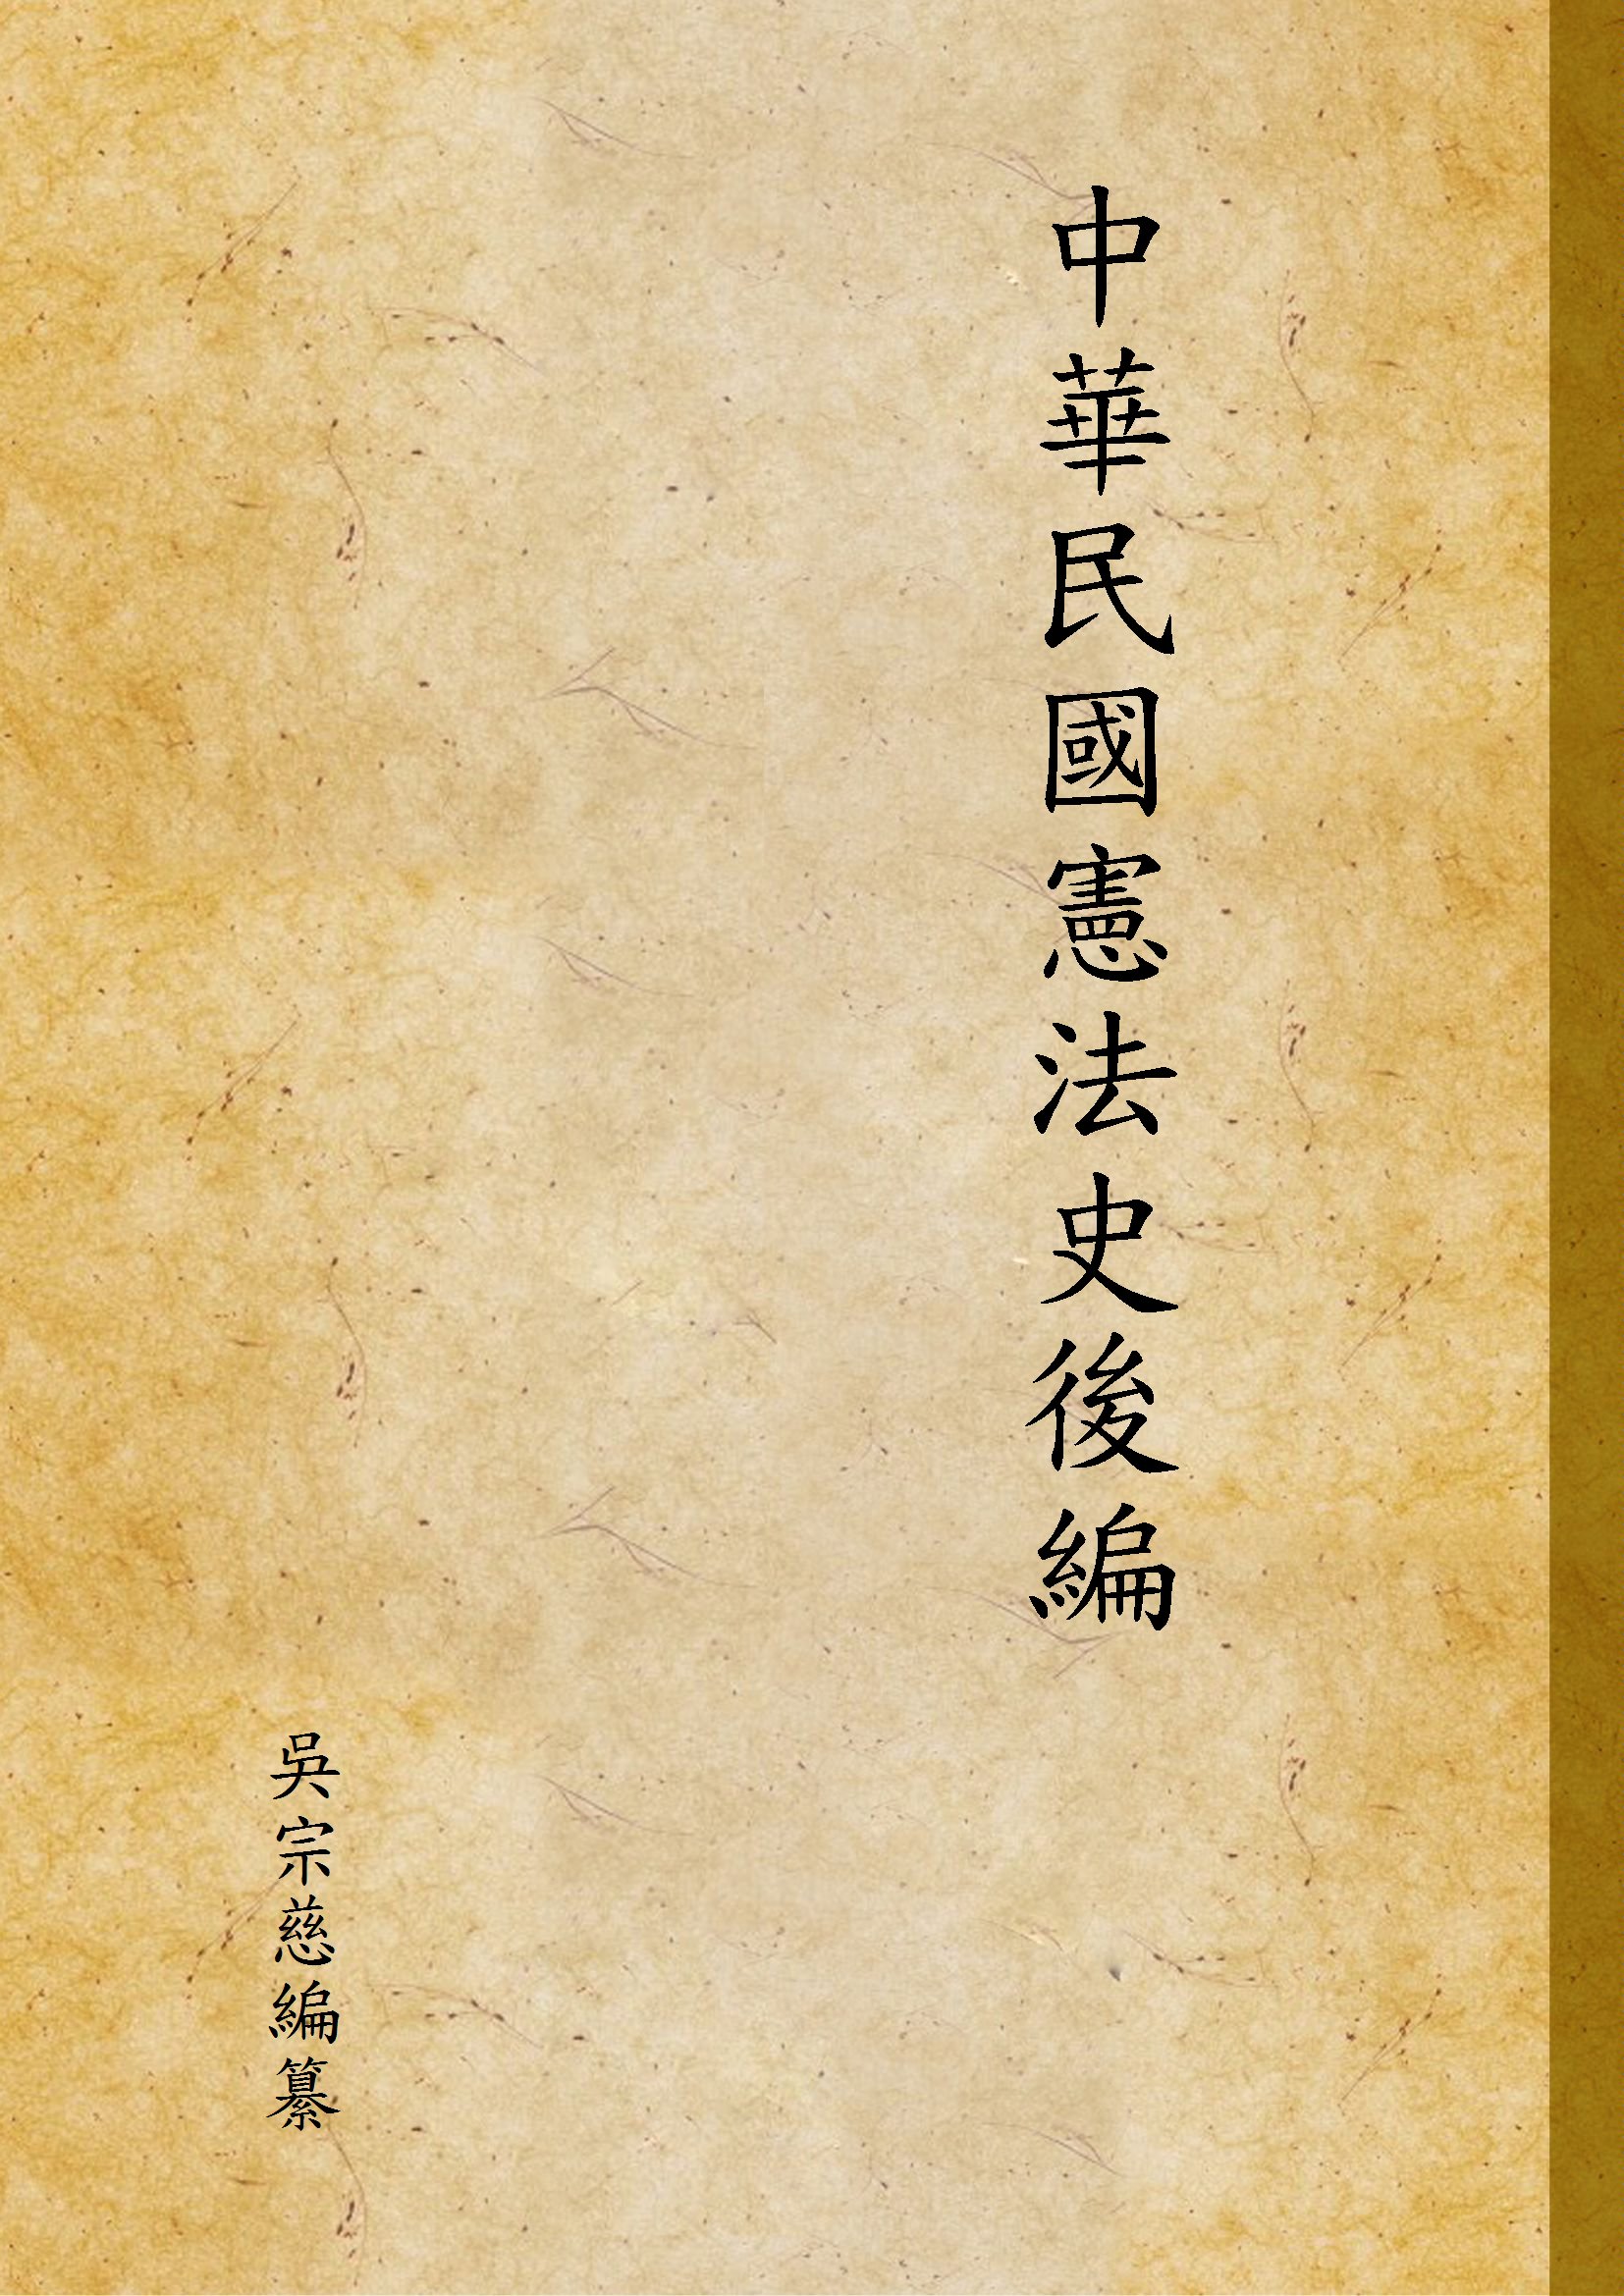 中華民國憲法史後編
吳宗慈編纂